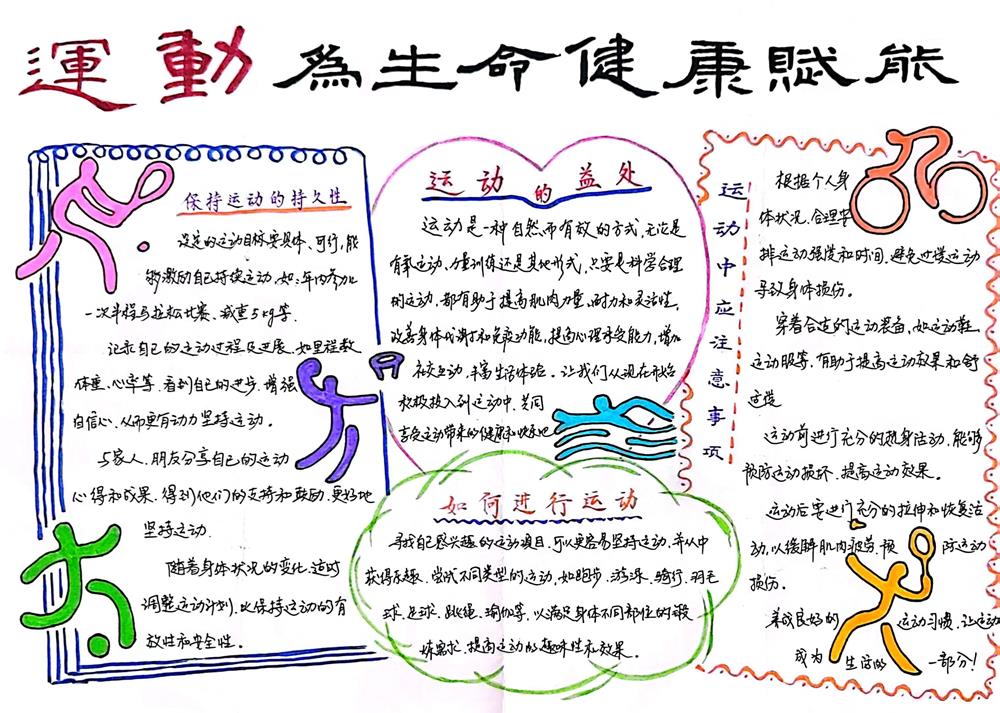 運動為生命健康賦能
保持运动的持久性
设定的运动目标要具体、可行,能
够激励自己持续运动,如:年内参加
一次半程马拉松比赛、减重5kg等.
记录自己的运动过程及进展,如里程数
体重、心率等,看到自己的进步,增强
自信心,从而更有动力坚持运动。
与家人、朋友分享自己的运动
心得和成果,得到他们的支持和鼓励,更好地
坚持运动.
随着身体状况的变化,适时
调整运动计划,以保持运动的有
效性和安全性.
运动的益处
运动是一种自然而有效的方式,无论是
有氧运动、力量训练还是其他形式,只要是科学合理
的运动,都有助于提高肌肉力量、耐力和灵活性,
改善身体代谢和免疫功能,提高心理承受能力,增加
社交互动,丰富生活体验。让我们从现在开始
积极投入到运动中,共同
享受运动带来的健康和快乐吧
如何进行运动
寻找自己感兴趣的运动项目,可以更容易坚持运动,并从中
获得乐趣、尝试不同类型的运动,如跑步、游泳、骑行、羽毛
球、足球、跳绳、瑜伽等,以满足身体不同部位的锻
炼需求,提高运动的趣味性和效果.
运动中应注意事项
根据个人身
体状况,合理安
排运动强度和时间,避免过度运动
导致身体损伤。
穿着合适的运动装备,如运动鞋、
运动服等,有助于提高运动效果和舒
适度
运动前进行充分的热身活动,能够
预防运动损坏,提高运动效果。
运动后要进行充分的拉伸和恢复活
动,以缓解肌肉疲劳,预防运动
损伤。
养成良好的运动习惯,让运动
成为生活的一部分!